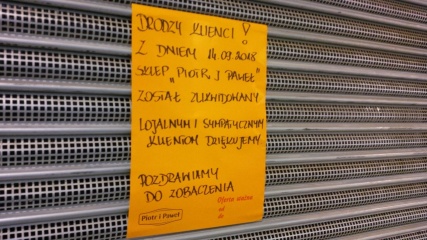 DRODZY KLIENCI!
Z DNIEM 14.09.2018
SKLEP "PIOTR I PAWEŁ"
ZOSTAŁ ZLIKWIDOWANY
LOJALNYM I SYMPATYCZNYM
KLIENTOM DZIĘKUJEMY
POZDRAWIAMY
DO ZOBACZENIA
Piotr i Paweł
Oferta ważna
od
do